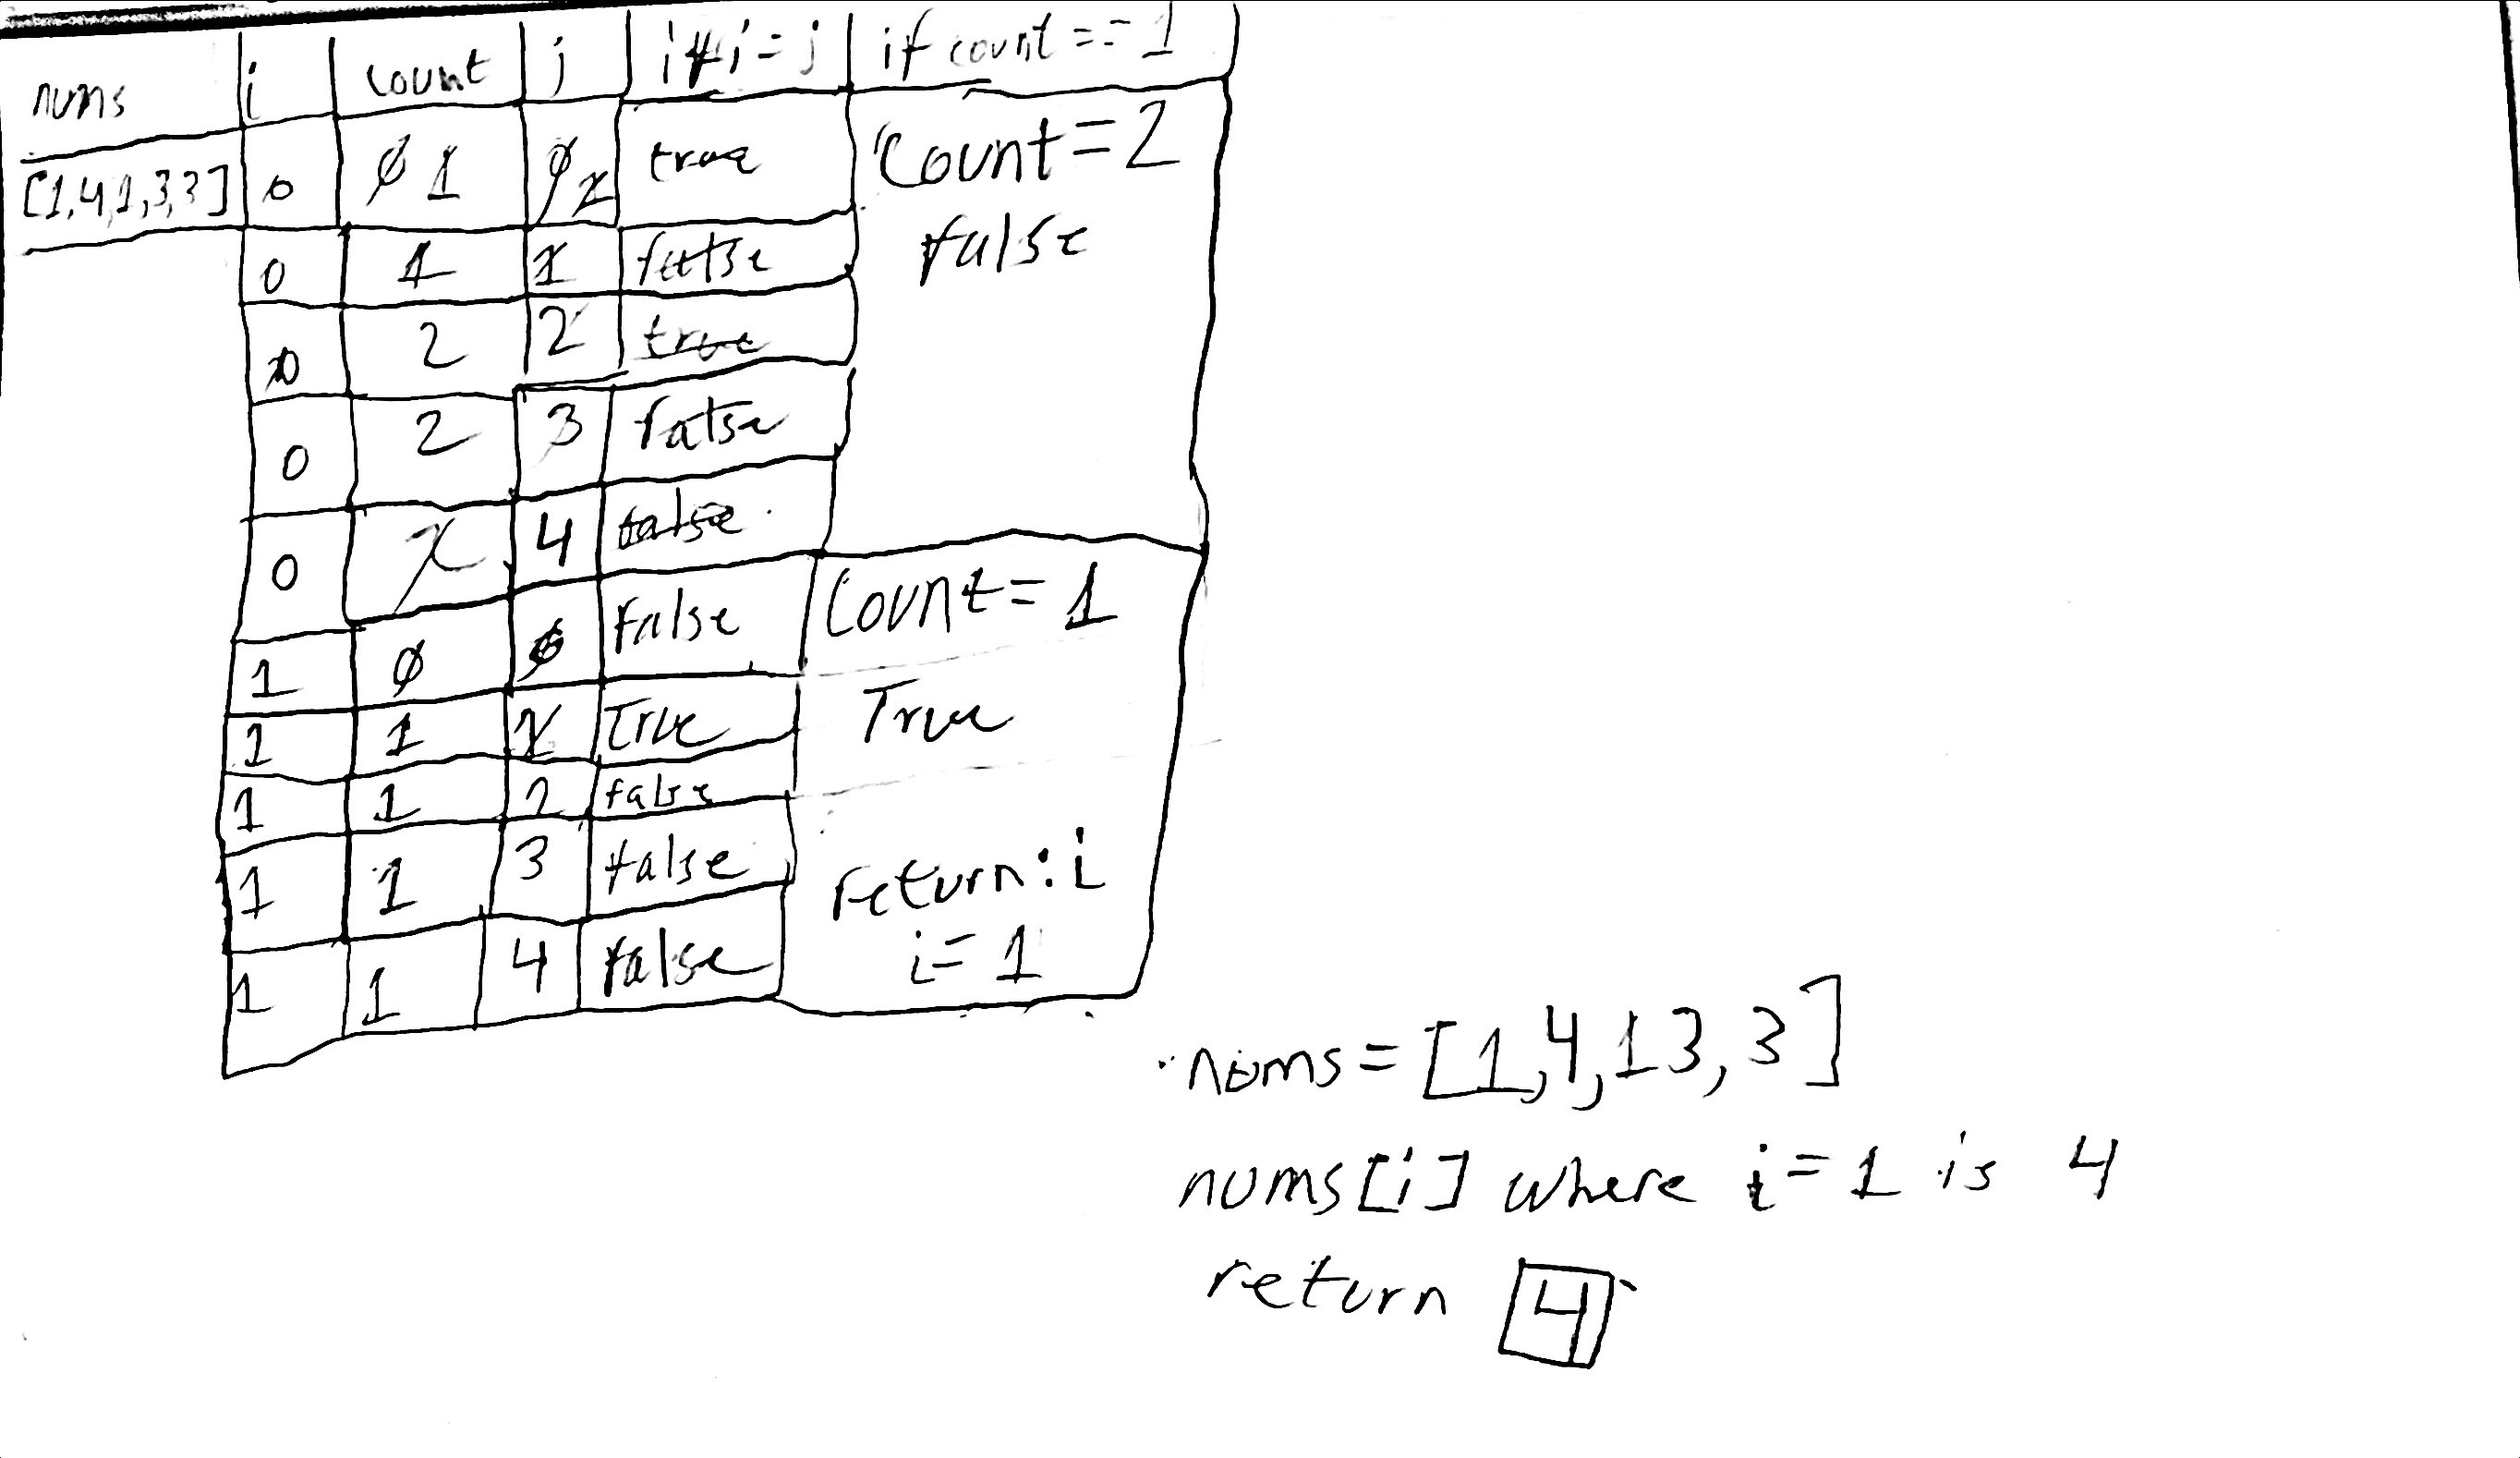 nums i count j if i = j if count == 1
[1,4,1,3,3] 0 0 1 0 1 true Count=2
false
0 1 1 false
0 2 2 true
0 2 3 false
0 2 4 false
1 0 0 False Count=1
1 1 1 True True
1 1 2 false
1 1 3 false return: i
1 1 4 false i=1
nums=[1,4,13,3]
nums[i] where i=1 is 4
return 4